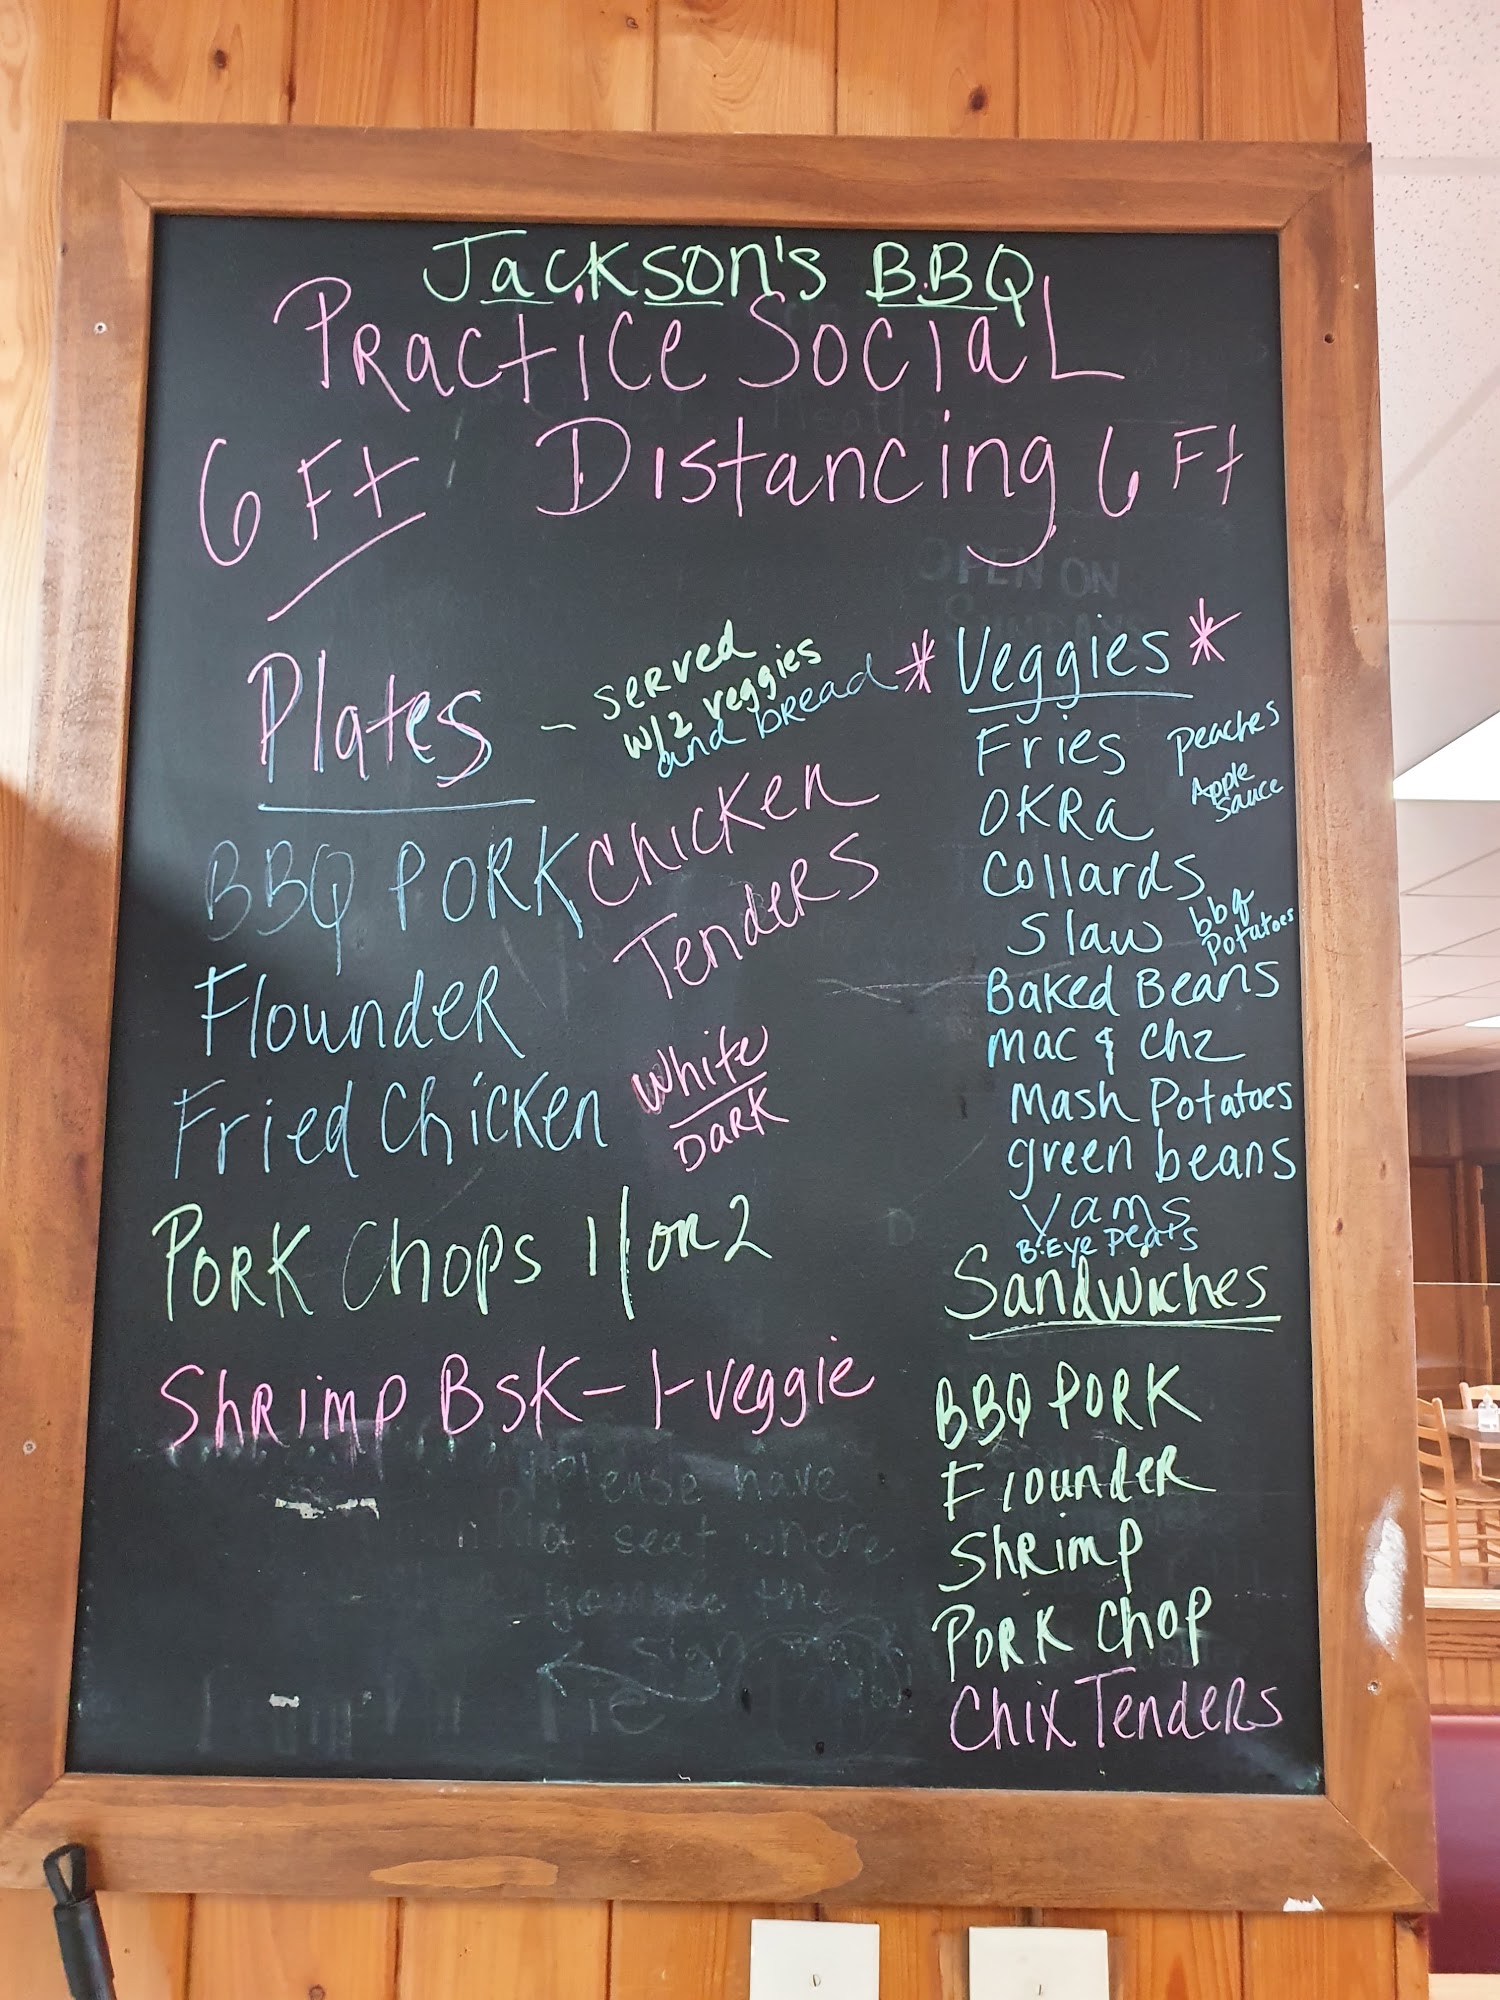 Jackson's BBQ
Practice Social
6 Ft Distancing 6 Ft
Plates - served
w/2 veggies
and bread
BBQ PORK
Chicken
Tenders
Flounder
Fried Chicken White
Dark
Pork Chops 1/or 2
Shrimp Bsk - 1-veggie
* Veggies *
Fries
Peaches
Apple
Sauce
OKRa
Collards
Slaw
bbq
Potatoes
Baked Beans
Mac & Chz
Mash Potatoes
green beans
Yams
B.Eye Peats
Sandwiches
BBQ PORK
Flounder
Shrimp
Pork Chop
Chix Tenders
OPEN ON
SUNDAYS
Please have
a seat where
you see the
sign